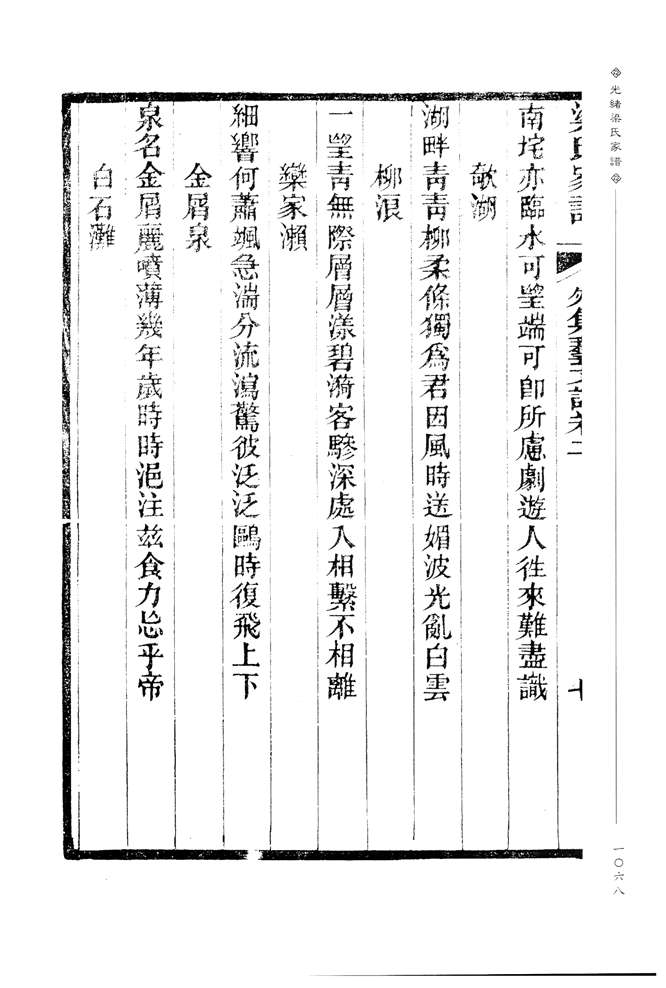 光緒梁氏家譜
一〇六八
南垞亦臨水可望端可卽所慮劇遊人往來難盡識
欹湖
湖畔靑靑柳柔條獨爲君因風時送媚波光亂白雲
柳浪
一望靑無際層層漾碧漪客驂深處入相繫不相離
欒家瀨
細響何蕭颯急湍分流瀉驚彼泛泛鷗時復飛上下
金屑泉
泉名金屑麗噴薄幾年歲時時浥注玆食力忘乎帝
白石灘